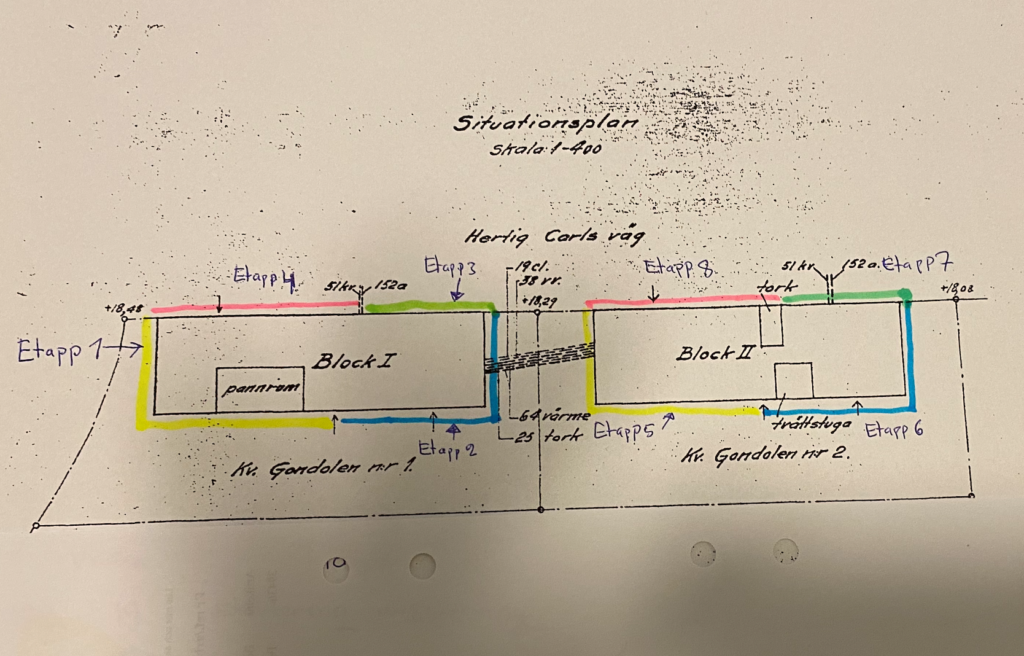 Situationsplan
Skala: 1-400
Hertig Carls väg
Etapp 4
51 kr.
152 a
Etapp 3
19 cl.
38 vv.
+18,29
Etapp 8
51 kr
152 a.
Etapp 7
tork
+18,48
+18,08
Etapp 1
Block I
pannrum
Block II
64 värme
25 tork
Etapp 2
Etapp 5
tvättstuga
Etapp 6
Kv. Gondolen n:r 1.
Kv. Gondolen n:r 2.